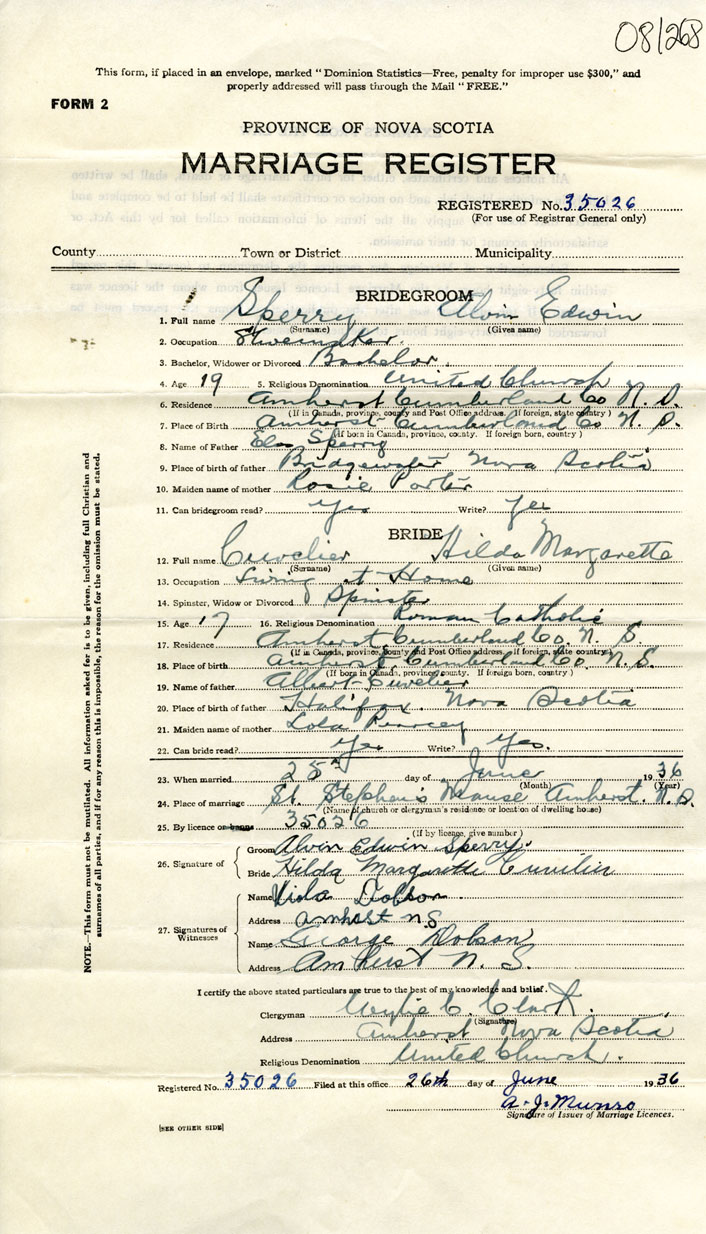 08/268
This form, if placed in an envelope, marked "Dominion Statistics—Free, penalty for improper use $300," and
properly addressed will pass through the Mail "FREE."
FORM 2
PROVINCE OF NOVA SCOTIA
MARRIAGE REGISTER
REGISTERED No. 35026
(For use of Registrar General only)
County Town or District Municipality
BRIDEGROOM
1. Full name Sperry Alvin Edwin
(Surname) (Given name)
2. Occupation Shoemaker.
3. Bachelor, Widower or Divorced Bachelor.
4. Age 19 5. Religious Denomination United Church
6. Residence Amherst Cumberland Co N. S.
(If in Canada, province, county and Post Office address. If foreign, state country)
7. Place of Birth Amherst Cumberland Co N. S.
(If born in Canada, province, county. If foreign born, country)
8. Name of Father Sperry
9. Place of birth of father Bridgewater Nova Scotia
10. Maiden name of mother Rosie Porter
11. Can bridegroom read? Yes Write? Yes
BRIDE
12. Full name Cuvelier Hilda Margarette
(Surname) (Given name)
13. Occupation Living at Home
14. Spinster, Widow or Divorced Spinster
15. Age 17 16. Religious Denomination Roman Catholic
17. Residence Amherst Cumberland Co. N. S.
(If in Canada, province, county and Post Office address. If foreign, state country)
18. Place of birth Amherst Cumberland Co. N. S.
(If born in Canada, province, county. If foreign born, country)
19. Name of father Albert Cuvelier
20. Place of birth of father Halifax. Nova Scotia
21. Maiden name of mother Lola Pearcey
22. Can bride read? Yes Write? Yes.
23. When married 25th day of June 1936
(Month) (Year)
24. Place of marriage St. Stephen's Manse Amherst. N. S.
(Name of church or clergyman's residence or location of dwelling house)
25. By licence or banns 35026
(If by license, give number)
26. Signature of Groom Alvin Edwin Sperry.
Bride Hilda Margarette Cuvilier
27. Signatures of Witnesses
Name Dobson
Address Amhest n.S
Name George Dobson
Address Amherst N. S.
I certify the above stated particulars are true to the best of my knowledge and belief.
Clergyman Wylie C. Clark.
(Signature)
Address Amherst Nova Scotia
Religious Denomination United Church.
Registered No. 35026 Filed at this office 26th day of June 1936
A. J. Munro
Signature of Issuer of Marriage Licences.
[SEE OTHER SIDE]
NOTE.—This form must not be mutilated. All information asked for is to be given, including full Christian and
surnames of all parties, and if for any reason this is impossible, the reason for the omission must be stated.